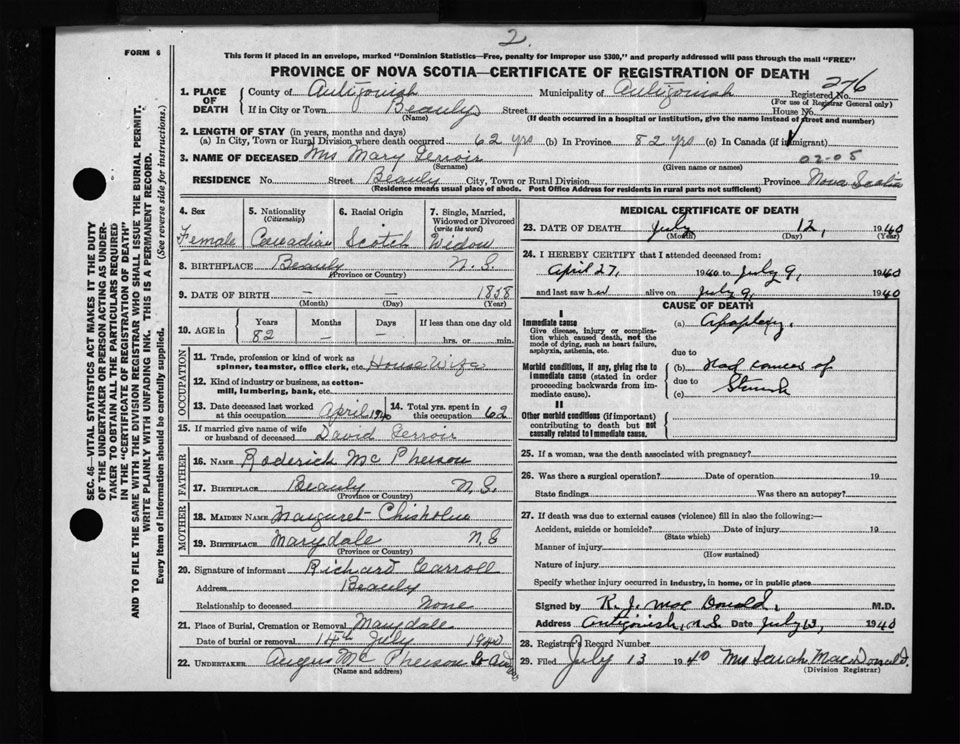 2.
FORM 6
This form if placed in an envelope, marked "Dominion Statistics—Free, penalty for improper use $300," and properly addressed will pass through the mail "FREE"
PROVINCE OF NOVA SCOTIA—CERTIFICATE OF REGISTRATION OF DEATH
SEC. 46—VITAL STATISTICS ACT MAKES IT THE DUTY
OF THE UNDERTAKER OR PERSON ACTING AS UNDER-
TAKER TO OBTAIN ALL THE PARTICULARS REQUIRED
IN THE "CERTIFICATE OF REGISTRATION OF DEATH"
AND TO FILE THE SAME WITH THE DIVISION REGISTRAR WHO SHALL ISSUE THE BURIAL PERMIT.
WRITE PLAINLY WITH UNFADING INK. THIS IS A PERMANENT RECORD.
Every item of information should be carefully supplied. (See reverse side for instructions.)
1. PLACE OF DEATH County of Antigonish Municipality of Antigonish Registered No. 276
(For use of Registrar General only)
If in City or Town Beauly Street House No.
(Name) (If death occurred in a hospital or institution, give the name instead of street and number)
2. LENGTH OF STAY (in years, months and days)
(a) In City, Town or Rural Division where death occurred 62 yrs (b) In Province 82 yrs (c) In Canada (if immigrant)
02-05
3. NAME OF DECEASED Mrs Mary Gerroir
(Surname) (Given name or names)
RESIDENCE No. Street Beauly City, Town or Rural Division Province Nova Scotia
(Residence means usual place of abode. Post Office Address for residents in rural parts not sufficient)
4. Sex Female
5. Nationality (Citizenship) Canadian
6. Racial Origin Scotch
7. Single, Married, Widowed or Divorced (write the word) Widow
8. BIRTHPLACE Beauly N.S.
(Province or Country)
9. DATE OF BIRTH — — 1858
(Month) (Day) (Year)
10. AGE in Years 82 Months — Days — If less than one day old hrs. or min.
OCCUPATION
11. Trade, profession or kind of work as spinner, teamster, office clerk, etc. House Wife
12. Kind of industry or business, as cotton-mill, lumbering, bank, etc.
13. Date deceased last worked at this occupation April 1940
14. Total yrs. spent in this occupation 62
15. If married give name of wife or husband of deceased David Gerroir
FATHER
16. NAME Roderick McPherson
17. BIRTHPLACE Beauly N.S.
(Province or Country)
MOTHER
18. MAIDEN NAME Margaret Chisholm
19. BIRTHPLACE Marydale N.S
(Province or Country)
20. Signature of informant Richard Carroll
Address Beauly
Relationship to deceased None
21. Place of Burial, Cremation or Removal Marydale
Date of burial or removal 14th July 1940
22. UNDERTAKER Angus McPherson
(Name and address)
MEDICAL CERTIFICATE OF DEATH
23. DATE OF DEATH July 12, 1940
(Month) (Day) (Year)
24. I HEREBY CERTIFY that I attended deceased from:
April 27, 1940 to July 9, 1940
and last saw her alive on July 9, 1940
CAUSE OF DEATH
I
Immediate cause
Give disease, injury or complication which caused death, not the mode of dying, such as heart failure, asphyxia, asthenia, etc.
(a) Apoplexy.
due to
Morbid conditions, if any, giving rise to immediate cause (stated in order proceeding backwards from immediate cause).
(b) Had cancer of
due to
(c) Stomach
II
Other morbid conditions (if important) contributing to death but not causally related to immediate cause.
25. If a woman, was the death associated with pregnancy?
26. Was there a surgical operation? Date of operation 19
State findings Was there an autopsy?
27. If death was due to external causes (violence) fill in also the following:—
Accident, suicide or homicide? Date of injury 19
(State which)
Manner of injury
(How sustained)
Nature of injury
Specify whether injury occurred in industry, in home, or in public place
Signed by R. J. MacDonald, M.D.
Address Antigonish, N.S. Date July 13, 1940
28. Registrar's Record Number
29. Filed July 13 1940 Mrs Sarah MacDonald.
(Division Registrar)